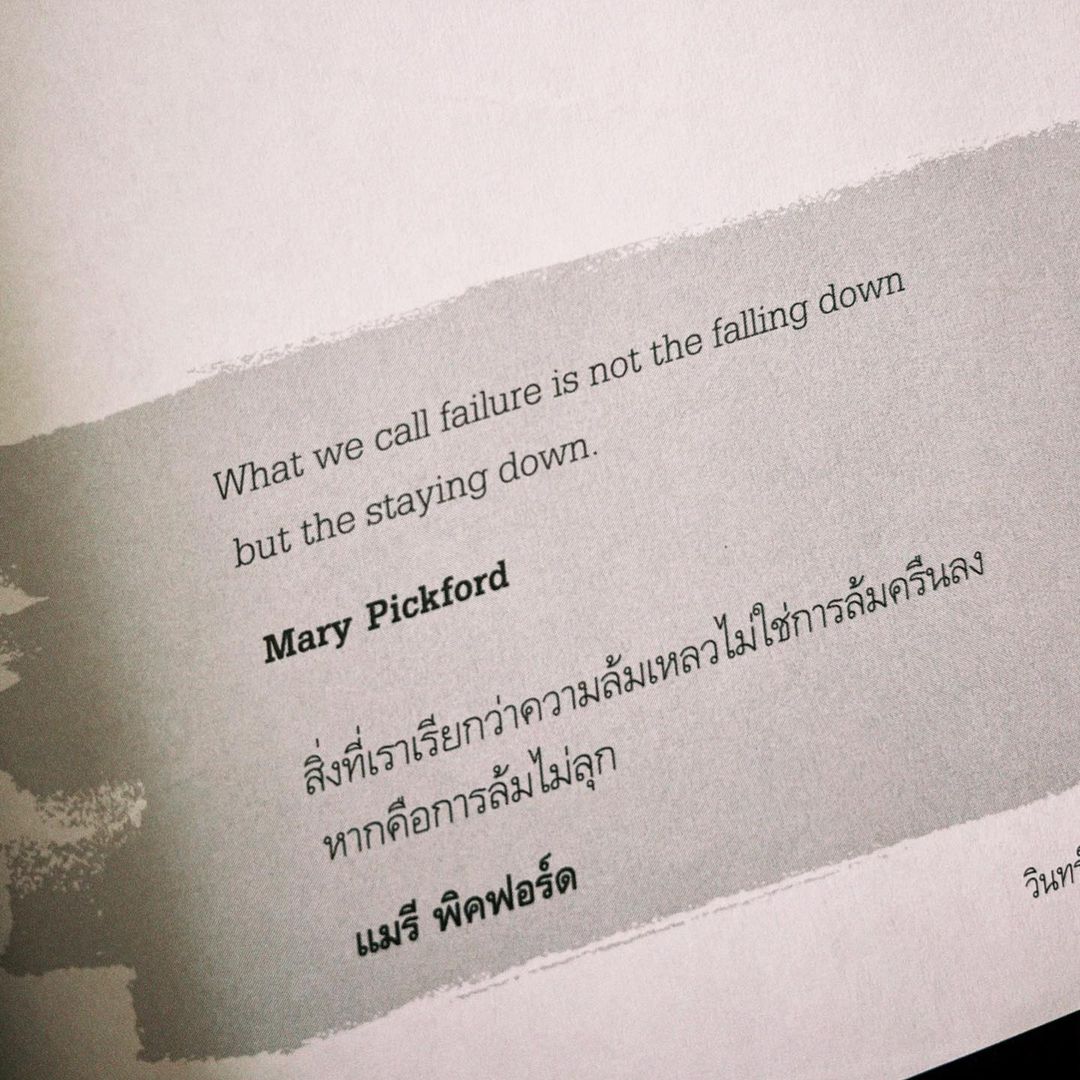 What we call failure is not the falling down
but the staying down.
Mary Pickford
สิ่งที่เราเรียกว่าความล้มเหลวไม่ใช่การล้มครืนลง
หากคือการล้มไม่ลุก
แมรี พิคฟอร์ด